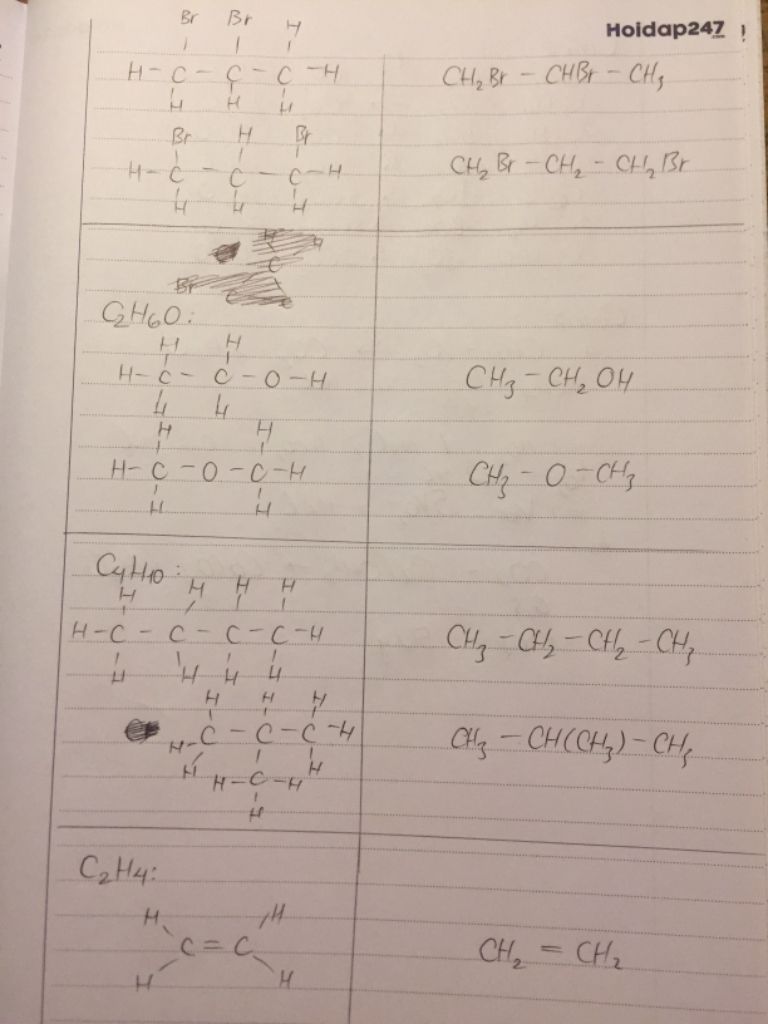 Hoidap247 !
Br Br H
H - C - C - C - H
H H H
CH₂Br - CHBr - CH₃
Br H Br
H - C - C - C - H
H H H
CH₂Br - CH₂ - CH₂Br
C₂H₆O:
H H
H - C - C - O - H
H H
CH₃ - CH₂OH
H H
H - C - O - C - H
H H
CH₃ - O - CH₃
C₄H₁₀:
H H H H
H - C - C - C - C - H
H H H H
CH₃ - CH₂ - CH₂ - CH₃
H H H
H - C - C - C - H
H H - C - H H
H
CH₃ - CH(CH₃) - CH₃
C₂H₄:
H H
C = C
H H
CH₂ = CH₂